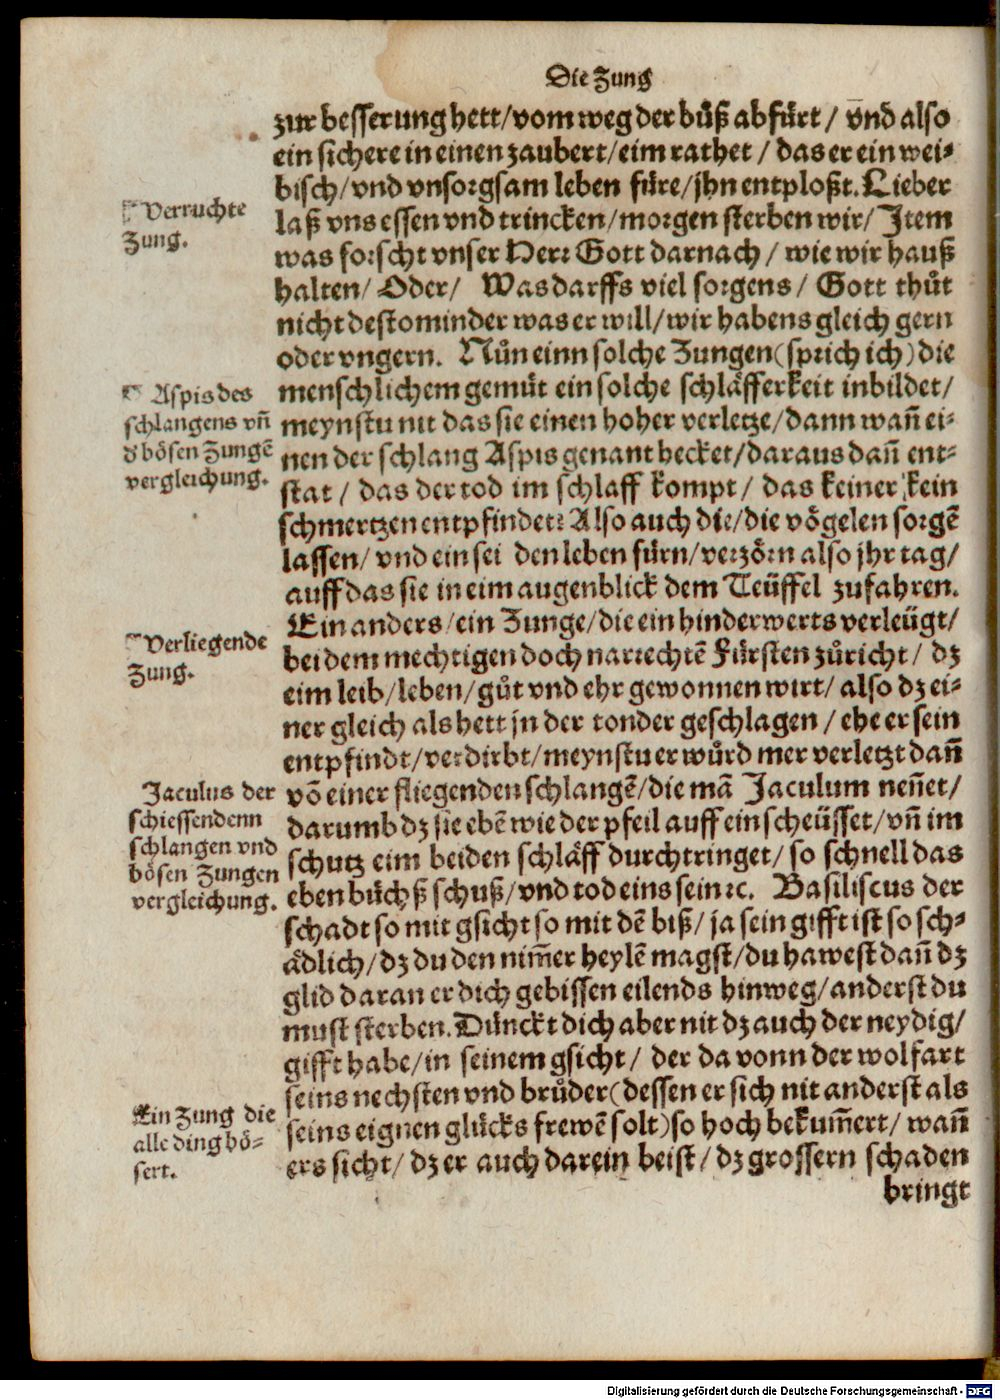 Die Zung
zur besserung hett/vom weg der bůß abfürt / vnd also
ein sichere in einen zaubert/eim rathet / das er ein wei-
bisch/vnd vnsorgsam leben füre/jhn entploßt. Lieber
laß vns essen vnd trincken/morgen sterben wir/ Item
was forscht vnser Herr Gott darnach / wie wir hauß
halten/ Oder/ Was darffs viel sorgens/ Gott thůt
nicht destominder was er will/wir habens gleich gern
oder vngern. Nůn einn solche Zungen(sprich ich)die
menschlichem gemüt ein solche schläfferkeit inbildet/
meynstu nit das sie einen hoher verletze/dann wañ ei-
nen der schlang Aspis genant hecket/daraus dañ ent-
stat / das der tod im schlaff kompt/ das keiner kein
schmertzen entpfindet: Also auch die/die vögelen sorgẽ
lassen/ vnd ein sei den leben fürn/verzörn also jhr tag/
auff das sie in eim augenblick dem Teüffel zufahren.
Ein anders/ein Zunge/die ein hinderwerts verleügt/
bei dem mechtigen doch narrechtẽ Fürsten zůricht/ dz
eim leib/leben/gůt vnd ehr gewonnen wirt/ also dz ei-
ner gleich als hett jn der tonder geschlagen / ehe er sein
entpfindt/verdirbt/meynstu er würd mer verletzt dañ
võ einer fliegenden schlangẽ/die mã Jaculum neñet/
darumb dz sie ebẽ wie der pfeil auff ein scheüsset/vñ im
schutz eim beiden schläff durchtringet/ so schnell das
eben büchß schuß/vnd tod eins sein ꝛc. Basiliscus der
schadt so mit gsicht so mit dẽ biß/ ja sein gifft ist so sch-
ädlich/dz du den nim̃er heylẽ magst/du hawest dañ dz
glid daran er dich gebissen eilends hinweg/anderst du
must sterben. Dünckt dich aber nit dz auch der neydig/
gifft habe/in seinem gsicht/ der da vonn der wolfart
seins nechsten vnd brůder(dessen er sich nit anderst als
seins eignen glücks frewẽ solt)so hoch bekum̃ert/ wañ
ers sicht/ dz er auch darein beist/ dz grossern schaden
bringt
Verruchte
Zung.
Aspis des
schlangens vñ
d bösen Zungẽ
vergleichung.
Verliegende
Zung.
Jaculus der
schiessendenn
schlangen vnd
bösen Zungen
vergleichung.
Ein Zung die
alle ding bö-
sert.
Digitalisierung gefördert durch die Deutsche Forschungsgemeinschaft - DFG